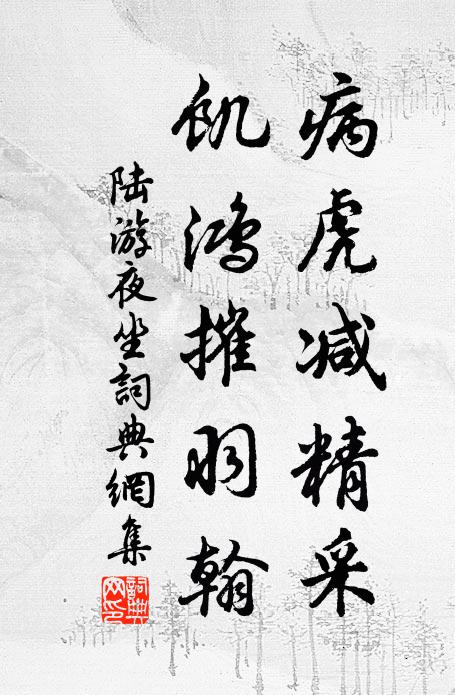 病虎减精采
飢鴻摧羽翰
陆游夜坐詞典網集
詞典